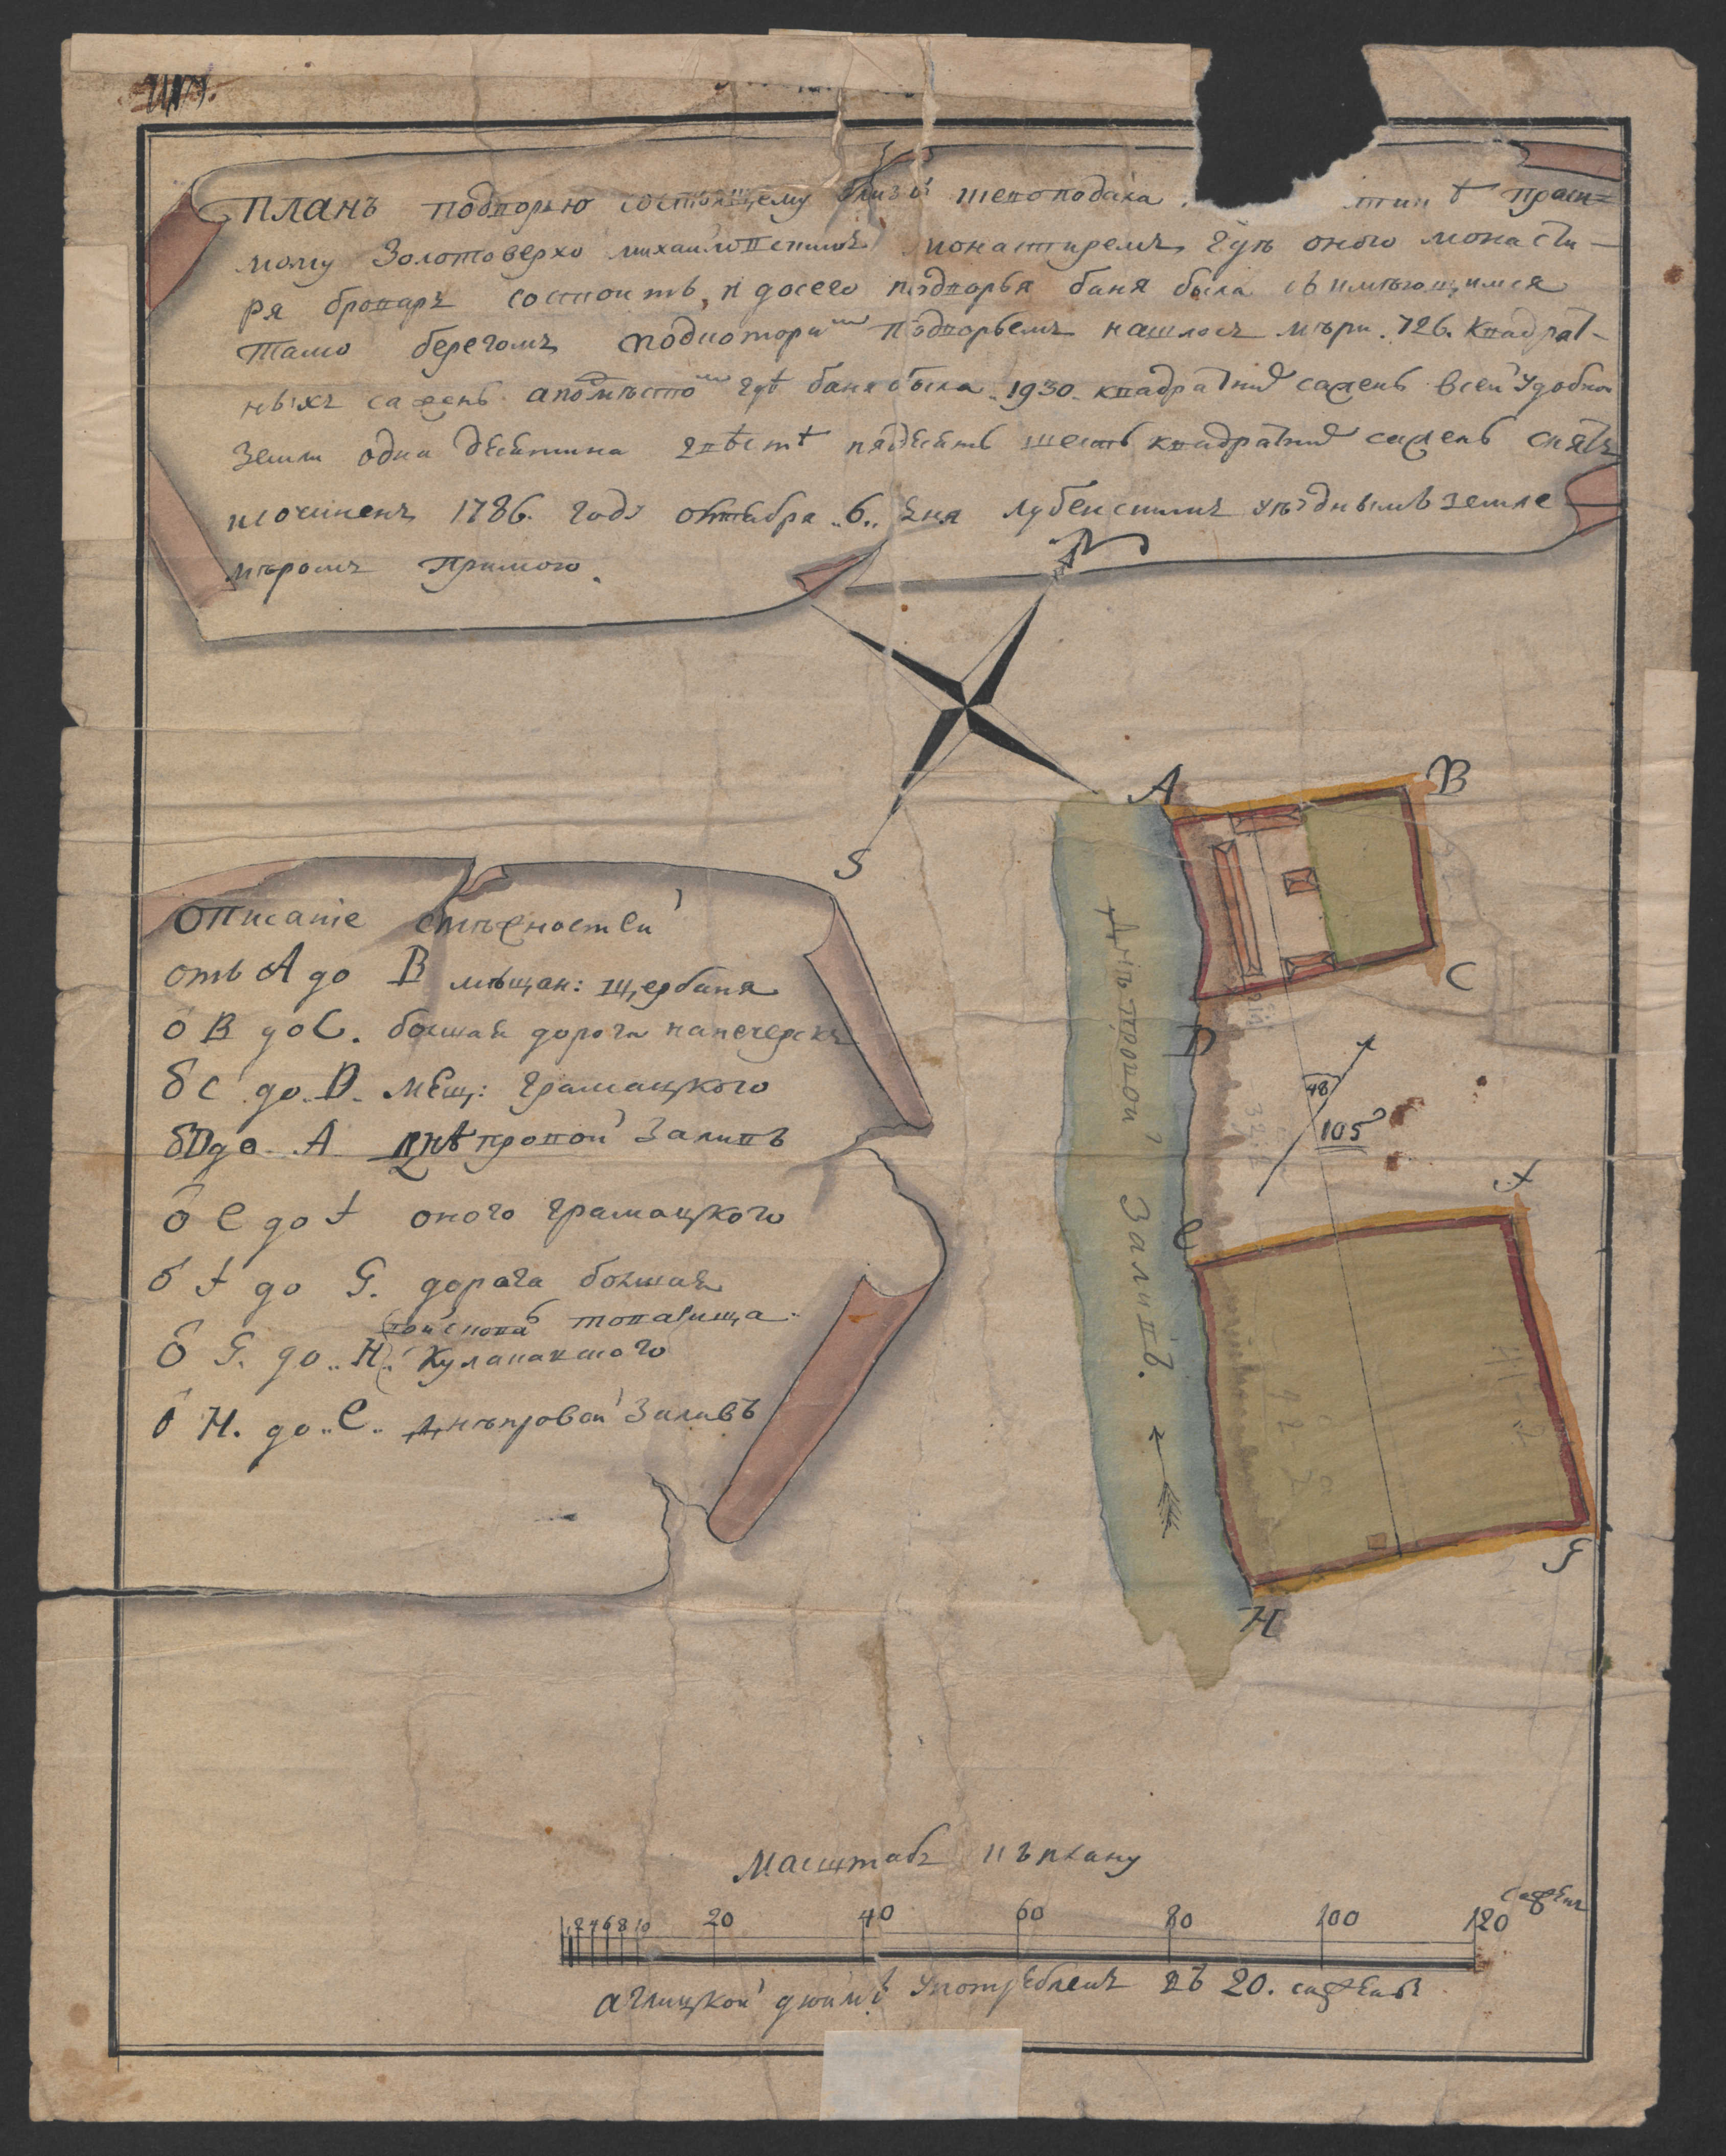 ПЛАНЪ подворью состоящему близъ
мому Золотоверхо михайловскимъ монастиремъ гдѣ оного монасти-
ря броваръ состоитъ, и досего подворья баня была съ имѣющимся
тамо берегомъ подкоторимъ подворьемъ нашлось мѣри. 726. квадрат-
ныхъ сажень апомѣсто гдѣ баня была 1930. квадратнихъ сажень всей удобной
Земли одна десятина двѣстѣ пядесятъ шесть квадратнихъ сажень снятъ
исочиненъ 1786. году октабра „6„ дня лубенскимъ уѣзднымъ земле
мѣромъ
N
S
Описаніе смѣжностей
отъ А до В мѣщан: Щербаня
ѿ В до С. болшая дорога напечерскъ
ѿ С до D. мещ: Грамацкого
ѿ D до А днѣпровой Заливъ
ѿ е до f оного Грамацкого
ѿ f до G. дорога болшая
ѿ G. до „H.
ѿ H. до „е„ Днѣпровой Заливъ
A
B
C
D
Днѣпровой Заливъ.
48
105
e
f
G
H
Масштабъ къ плану
2 4 6 8 10 20 40 60 80 100 120 сажень
аглицкой дюймъ употребленъ въ 20. сажень